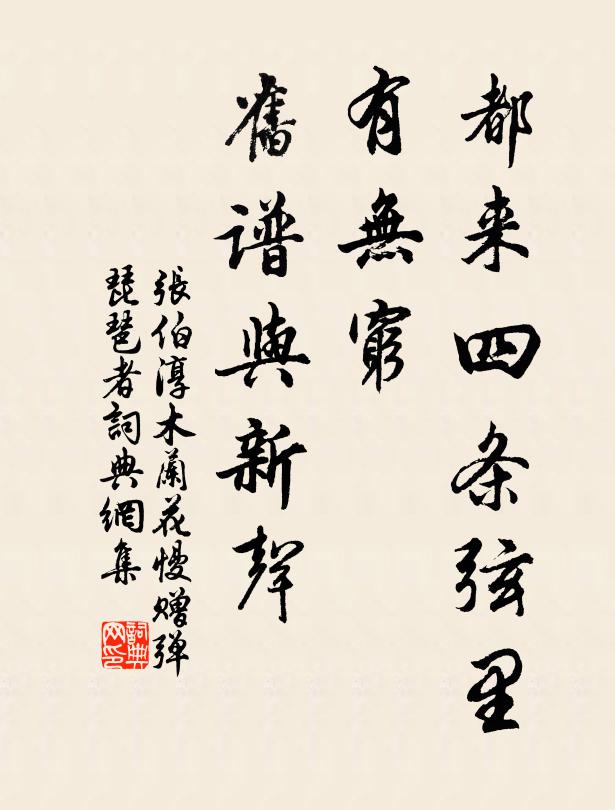 都来四条弦里
有無窮
舊谱與新聲
張伯淳木蘭花慢赠弹
琵琶者詞典網集
詞典
网印